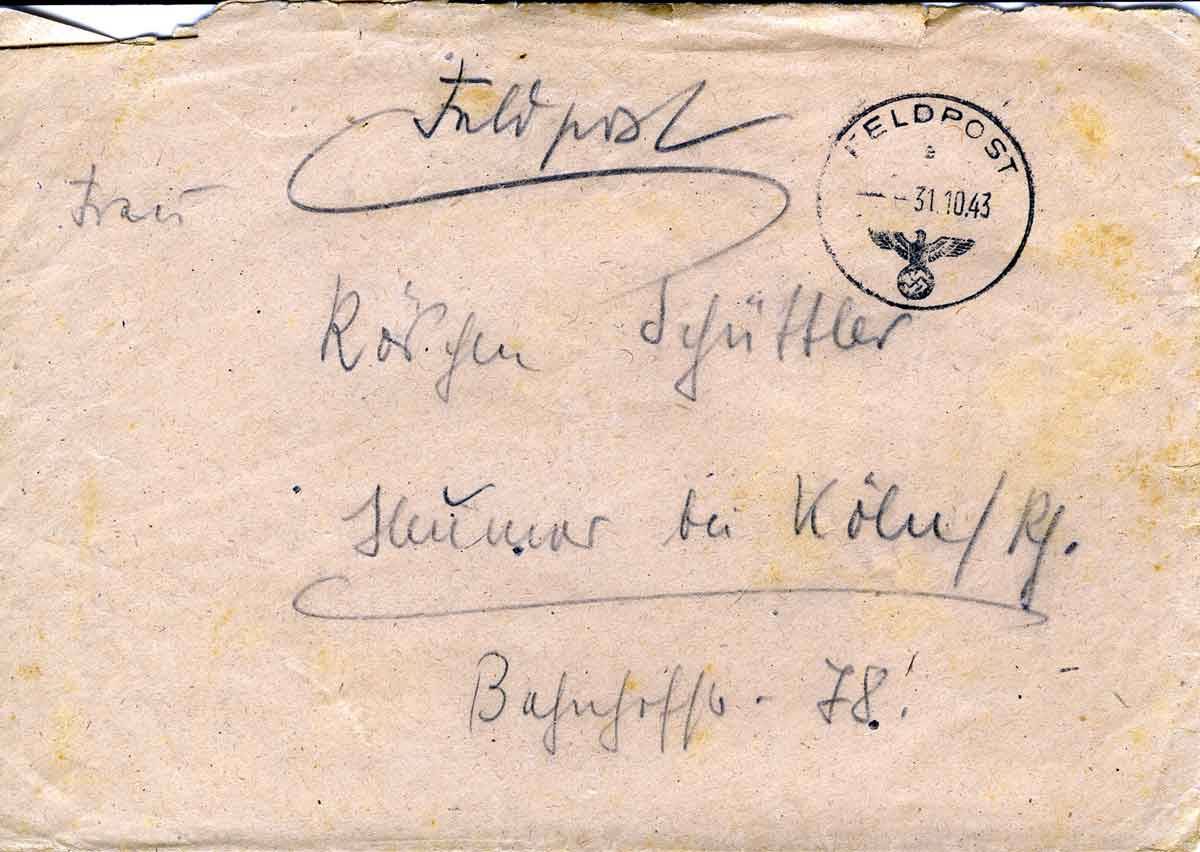 Feldpost
FELDPOST
a
31.10.43
Frau
Röschen Schüttler
Heumar bei Köln/Rh.
Bahnhofstr. 78.